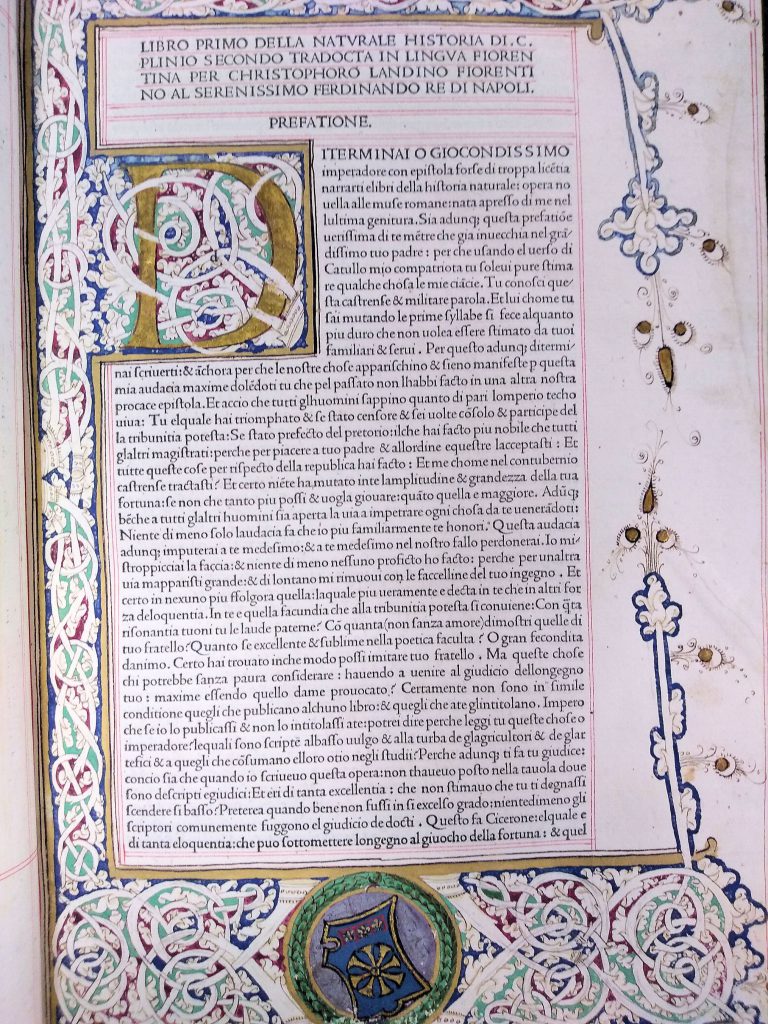 LIBRO PRIMO DELLA NATVRALE HISTORIA DI.C.
PLINIO SECONDO TRADOCTA IN LINGVA FIOREN
TINA PER CHRISTOPHORO LANDINO FIORENTI
NO AL SERENISSIMO FERDINANDO RE DI NAPOLI.
PREFATIONE.
DITERMINAI O GIOCONDISSIMO
imperadore con epistola forse di troppa licētia
narrarti elibri della historia naturale: opera no
uella alle muse romane: nata apresso di me nel
lultima genitura. Sia adunq; questa prefatiōe
uerissima di te mētre che gia inuecchia nel grā/
dissimo tuo padre: per che usando el uerso di
Catullo mio compatriota tu soleui pure stima
re qualche chosa le mie ciācie. Tu conosci que/
sta castrense & militare parola. Et lui chome tu
sai mutando le prime syllabe si fece alquanto
piu duro che non uolea essere stimato da tuoi
familiari & serui. Per questo adunq; ditermi/
nai scriuerti: & āchora per che le nostre chose apparischino & sieno manifeste p questa
mia audacia maxime dolēdoti tu che pel passato non lhabbi facto in una altra nostra
procace epistola. Et accio che tutti glhuomini sappino quanto di pari lomperio techo
uiua: Tu elquale hai triomphato & se stato censore & sei uolte cōsolo & participe del
la tribunitia potesta: Se stato prefecto del pretorio: ilche hai facto piu nobile che tutti
glaltri magistrati: perche per piacere a tuo padre & allordine equestre lacceptasti: Et
tutte queste cose per rispecto della republica hai facto: Et me chome nel contubernio
castrense tractasti? Et certo niēte ha mutato inte lamplitudine & grandezza della tua
fortuna: se non che tanto piu possi & uogla giouare: quāto quella e maggiore. Adūq;
bēche a tutti glaltri huomini sia aperta la uia a impetrare ogni chosa da te uenerādoti:
Niente di meno solo laudacia fa che io piu familiarmente te honori. Questa audacia
adunq; imputerai a te medesimo: & a te medesimo nel nostro fallo perdonerai. Io mi
stroppicciai la faccia: & niente di meno nessuno proficto ho facto: perche per unaltra
uia mapparisti grande: & di lontano mi rimuoui con le faccelline del tuo ingegno. Et
certo in nexuno piu ffolgora quella: laquale piu ueramente e decta in te che in altri for
za deloquentia. In te e quella facundia che alla tribunitia potesta si conuiene: Con q̄ta
risonantia tuoni tu le laude paterne? Cō quanta (non sanza amore) dimostri quelle di
tuo fratello? Quanto se excellente & sublime nella poetica faculta? O gran fecondita
danimo. Certo hai trouato inche modo possi imitar tuo fratello. Ma queste chose
chi potrebbe sanza paura considerare: hauendo a uenire al giudicio dellongegno
tuo: maxime essendo quello dame prouocato? Certamente non sono in simile
conditione quegli che publicano alchuno libro: & quegli che ate glintitolano. Impero
che se io lo publicassi & non lo intitolassi ate: potrei dire perche leggi tu queste chose o
imperadore? lequali sono scripte albasso uulgo & alla turba de glagricultori & de glar
tefici & a quegli che cōsumano elloro otio negli studii? Perche adunq; ti fa tu giudice:
concio sia che quando io scriueuo questa opera: non thaueuo posto nella tauola doue
sono descripti egiudici: Et eri di tanta excellentia: che non stimauo che tu ti degnassi
scendere si basso? Preterea quando bene non fussi in si excelso grado: nientedimeno gli
scriptori comunemente fuggono el giudicio de docti. Questo fa Cicerone: elquale e
di tanta eloquentia: che puo sottomettere longegno al giuocho della fortuna: & quel